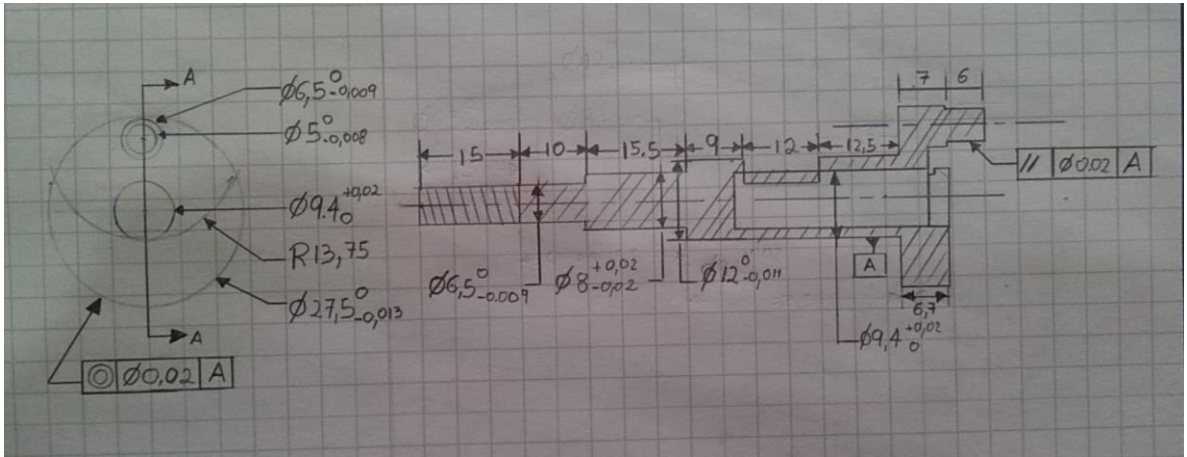 A
Ø6,5 0 -0,009
Ø5 0 -0,008
Ø9.4 +0,02 0
R13,75
Ø27,5 0 -0,013
A
◎ Ø0,02 A
7 6
15 10 15.5 9 12 12,5
// Ø0.02 A
Ø6,5 0 -0.009
Ø8 +0,02 -0,02
Ø12 0 -0,011
A
6,7
Ø9,4 +0,02 0